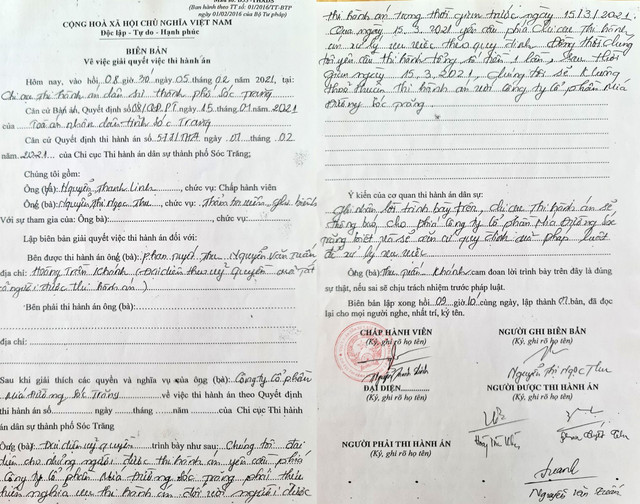 (Ban hành theo TT số: 01/2016/TT-BTP
ngày 01/02/2016 của Bộ Tư pháp)
CỘNG HOÀ XÃ HỘI CHỦ NGHĨA VIỆT NAM
Độc lập - Tự do - Hạnh phúc
BIÊN BẢN
Về việc giải quyết việc thi hành án
Hôm nay, vào hồi 08 giờ 30 ngày 05 tháng 02 năm 2021, tại:
Chi cục Thi hành án dân sự thành phố Sóc Trăng
Căn cứ Bản án, Quyết định số ngày 15 tháng 01 năm 2021
của Toà án nhân dân tỉnh Sóc Trăng
Căn cứ Quyết định thi hành án số 511/THA ngày 01 tháng 02
năm 2021 của Chi cục Thi hành án dân sự thành phố Sóc Trăng;
Chúng tôi gồm:
Ông (bà): Nguyễn Thanh Linh, chức vụ: Chấp hành viên
Ông (bà): Nguyễn Thị Ngọc Thu, chức vụ: Thẩm tra viên ghi biên
Với sự tham gia của: Ông (bà): chức vụ:
Lập biên bản giải quyết việc thi hành án đối với:
Bên được thi hành án ông (bà): Phan Tuyết Thu, Nguyễn Văn Tuấn
địa chỉ: Hoàng Trần Khánh (Đại diện theo uỷ quyền của tất
cả người được thi hành án)
Bên phải thi hành án ông (bà):
địa chỉ:
Sau khi giải thích các quyền và nghĩa vụ của ông (bà): Công ty Cổ phần
Mía Đường Sóc Trăng về việc thi hành án theo Quyết định
thi hành án số ngày tháng năm của Chi cục Thi hành
án dân sự thành phố Sóc Trăng
Ông (bà): Đại diện uỷ quyền trình bày như sau: Chúng tôi đại
diện cho những người được thi hành án yêu cầu phía
Công ty Cổ phần Mía Đường Sóc Trăng phải thực
hiện nghĩa vụ thi hành án đối với người được
thi hành án trong thời gian trước ngày 15/3/2021.
Qua ngày 15.3.2021 yêu cầu phía Chi cục Thi hành
án xử lý vụ việc theo quy định. Đồng thời chúng
tôi yêu cầu thi hành tổng số tiền 1 lần, sau thời
gian ngày 15.3.2021, chúng tôi sẽ không
thoả thuận thi hành án với Công ty Cổ phần Mía
Đường Sóc Trăng
Ý kiến của cơ quan thi hành án dân sự:
Ghi nhận lời trình bày trên, Chi cục Thi hành án sẽ
thông báo cho phía Công ty Cổ phần Mía Đường Sóc
Trăng biết và sẽ căn cứ quy định của pháp luật
để xử lý vụ việc
Ông (bà) Thu, Tuấn, Khánh cam đoan lời trình bày trên đây là đúng
sự thật, nếu sai sẽ chịu trách nhiệm trước pháp luật.
Biên bản lập xong hồi 09 giờ 10 cùng ngày, lập thành 01 bản, đã đọc
lại cho mọi người nghe, nhất trí, ký tên.
CHẤP HÀNH VIÊN
(Ký, ghi rõ họ tên)
NGƯỜI GHI BIÊN BẢN
(Ký, ghi rõ họ tên)
Nguyễn Thanh Linh
Nguyễn Thị Ngọc Thu
ĐẠI DIỆN
(Ký, ghi rõ họ tên)
NGƯỜI ĐƯỢC THI HÀNH ÁN
(Ký, ghi rõ họ tên)
NGƯỜI PHẢI THI HÀNH ÁN
(Ký, ghi rõ họ tên)
Nguyễn Văn Tuấn